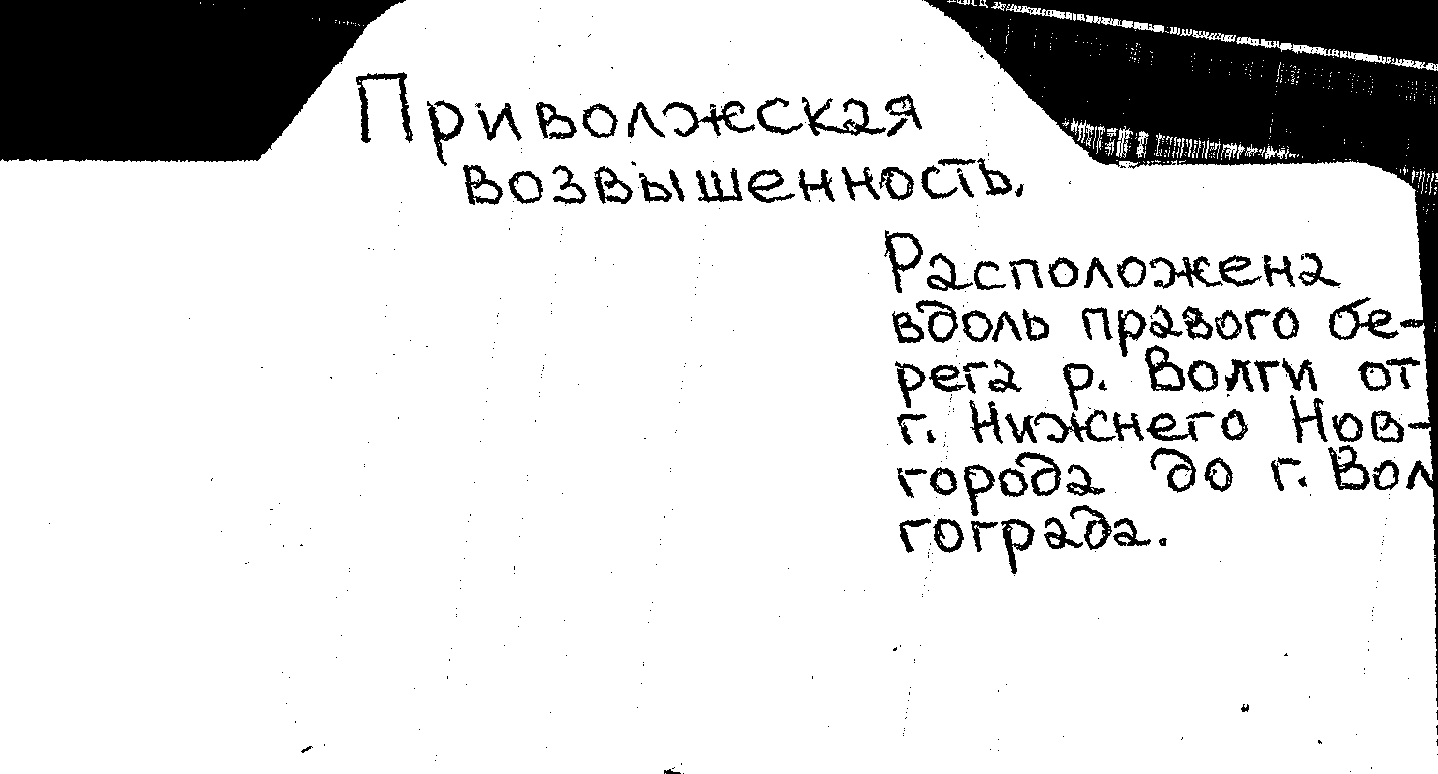 Приволжская
возвышенность.
Расположена
вдоль правого бе-
рега р. Волги от
г. Нижнего Нов-
города до г. Вол
гограда.